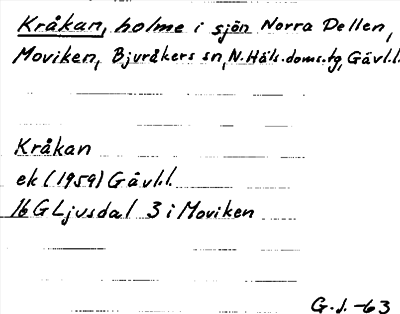 Kråkan, holme i sjön Norra Dellen,
Moviken, Bjuråkers sn, N. Häls. doms. tg, Gävl. l.
Kråkan
ek (1959) Gävl. l.
16 G Ljusdal 3 i Moviken
G. J. -63